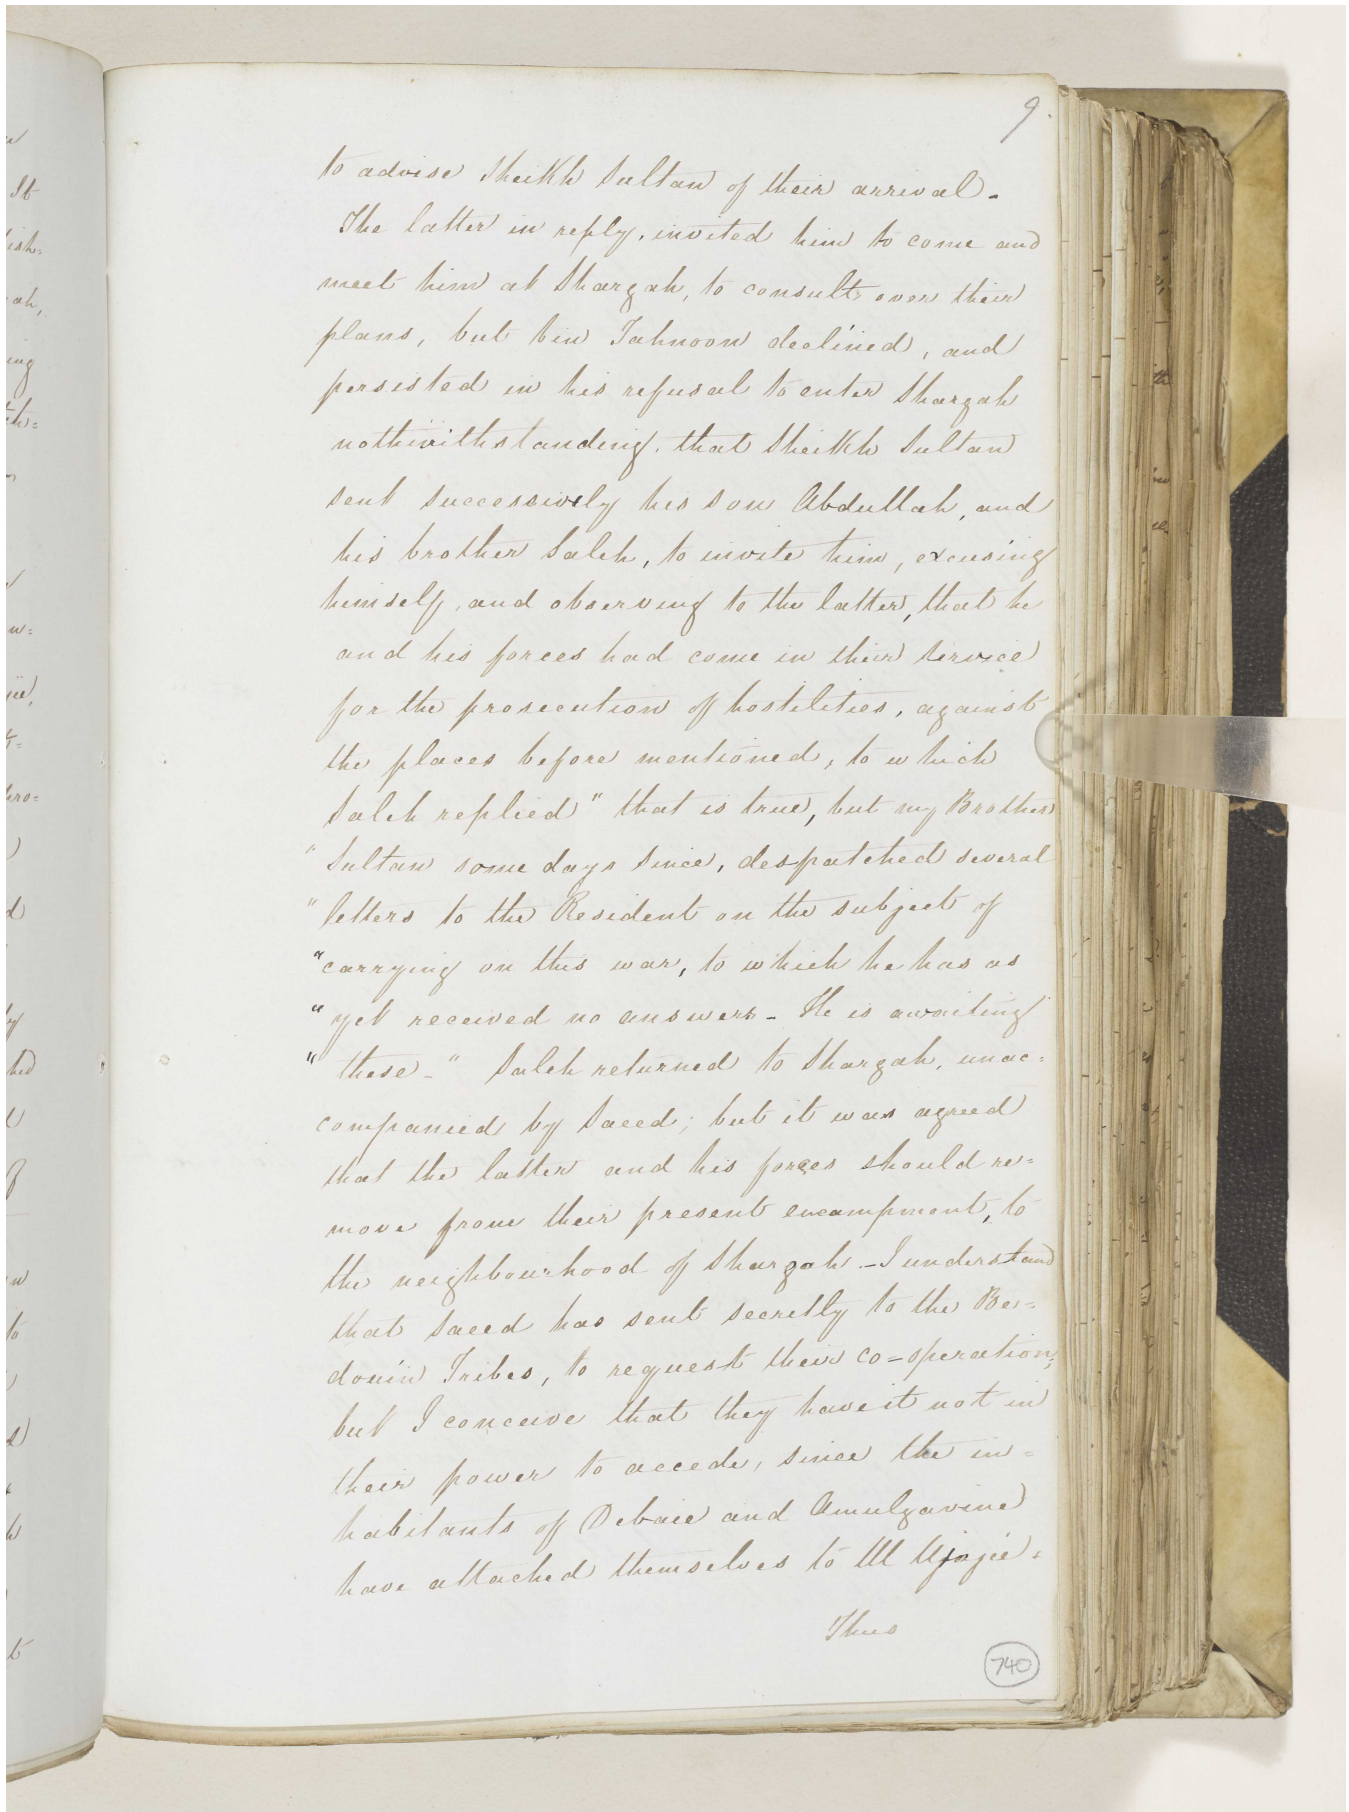 9.
to advise Sheikh Sultan of their arrival -
The latter in reply, invited him to come and
meet him at Shargah, to consult over their
plans, but bin Tahnoon declined, and
persisted in his refusal to enter Shargah
nothwithstanding, that Sheikh Sultan
sent successively his son Abdullah, and
his brother Saleh, to invite him, excusing
himself, and observing to the latter, that he
and his forces had come in their service
for the prosecution of hostilities, against
the places before mentioned, to which
Saleh replied " that is true, but my Brother
" Sultan some days since, despatched several
" letters to the Resident on the subject of
" carrying on this war, to which he has as
" yet received no answers - He is awaiting
" these - " Saleh returned to Shargah, unac=
companied by Saeed; but it was agreed
that the latter and his forces should re=
move from their present encampment, to
the neighbourhood of Shargah. - I understand
that Saeed has sent secretly to the Be=
douin Tribes, to request their co=operation;
but I conceive that they have it not in
their power to accede, since the in=
habitants of Debaie and Amulgavine
have attached themselves to Ul Ujajie=
Thus
740
It
ish=
ah,
ing
th=
w=
iee,
t=
hro=
d
hed
w
to
t